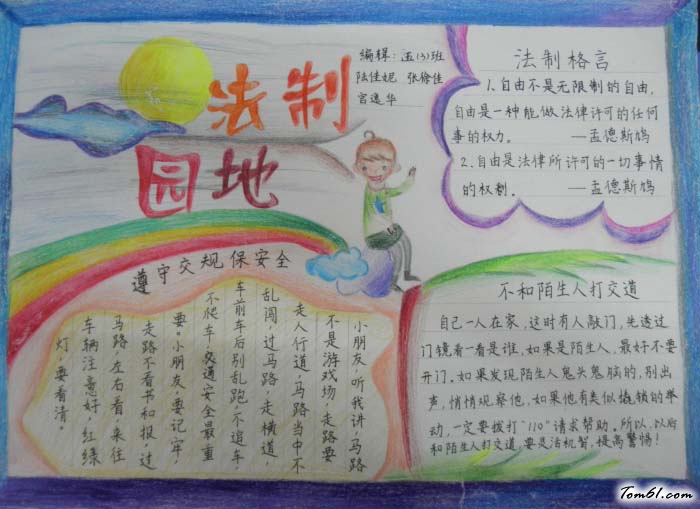 法制
园地
编辑：五（3）班
陆佳妮 张徐佳
宫逸华
法制格言
1.自由不是无限制的自由，
自由是一种能做法律许可的任何
事的权力。 —孟德斯鸠
2.自由是法律所许可的一切事情
的权利。 —孟德斯鸠
遵守交规保安全
小朋友，听我讲，马路
不是游戏场，走路要
走人行道，马路当中不
乱闯，过马路，走横道，
车前车后别乱跑，不追车，
不爬车，交通安全最重
要。小朋友，要记牢，
走路不看书和报，过
马路，左右看，来往
车辆注意好，红绿
灯，要看清。
不和陌生人打交道
自己一人在家，这时有人敲门，先透过
门镜看一看是谁，如果是陌生人，最好不要
开门。如果发现陌生人鬼头鬼脑的，别出
声，悄悄观察他，如果他有类似撬锁的举
动，一定要拨打"110"请求帮助。所以，以后
和陌生人打交道，要灵活机智，提高警惕！
Tom61.com